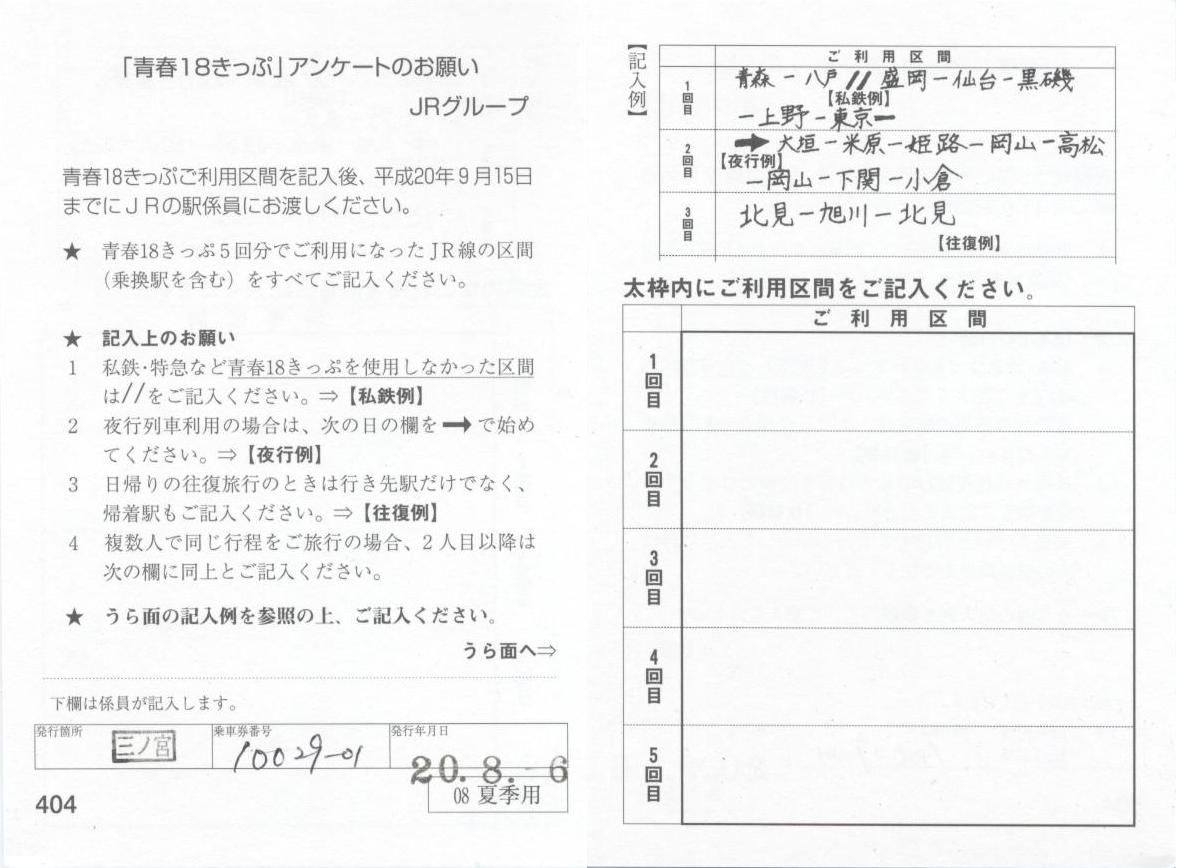 「青春18きっぷ」アンケートのお願い
JRグループ
青春18きっぷご利用区間を記入後、平成20年9月15日
までにJRの駅係員にお渡しください。
★ 青春18きっぷ5回分でご利用になったJR線の区間
(乗換駅を含む)をすべてご記入ください。
★ 記入上のお願い
1 私鉄・特急など青春18きっぷを使用しなかった区間
は//をご記入ください。⇒【私鉄例】
2 夜行列車利用の場合は、次の日の欄を➡で始め
てください。⇒【夜行例】
3 日帰りの往復旅行のときは行き先駅だけでなく、
帰着駅もご記入ください。⇒【往復例】
4 複数人で同じ行程をご旅行の場合、2人目以降は
次の欄に同上とご記入ください。
★ うら面の記入例を参照の上、ご記入ください。
うら面へ⇒
下欄は係員が記入します。
発行箇所 三ノ宮 乗車券番号 10029-01 発行年月日 20.8.-6
08 夏季用
404
【記入例】
ご利用区間
1回目 青森-八戸//盛岡-仙台-黒磯
【私鉄例】
-上野-東京-
2回目 ➡大垣-米原-姫路-岡山-高松
【夜行例】
-岡山-下関-小倉
3回目 北見-旭川-北見
【往復例】
太枠内にご利用区間をご記入ください。
ご利用区間
1回目
2回目
3回目
4回目
5回目